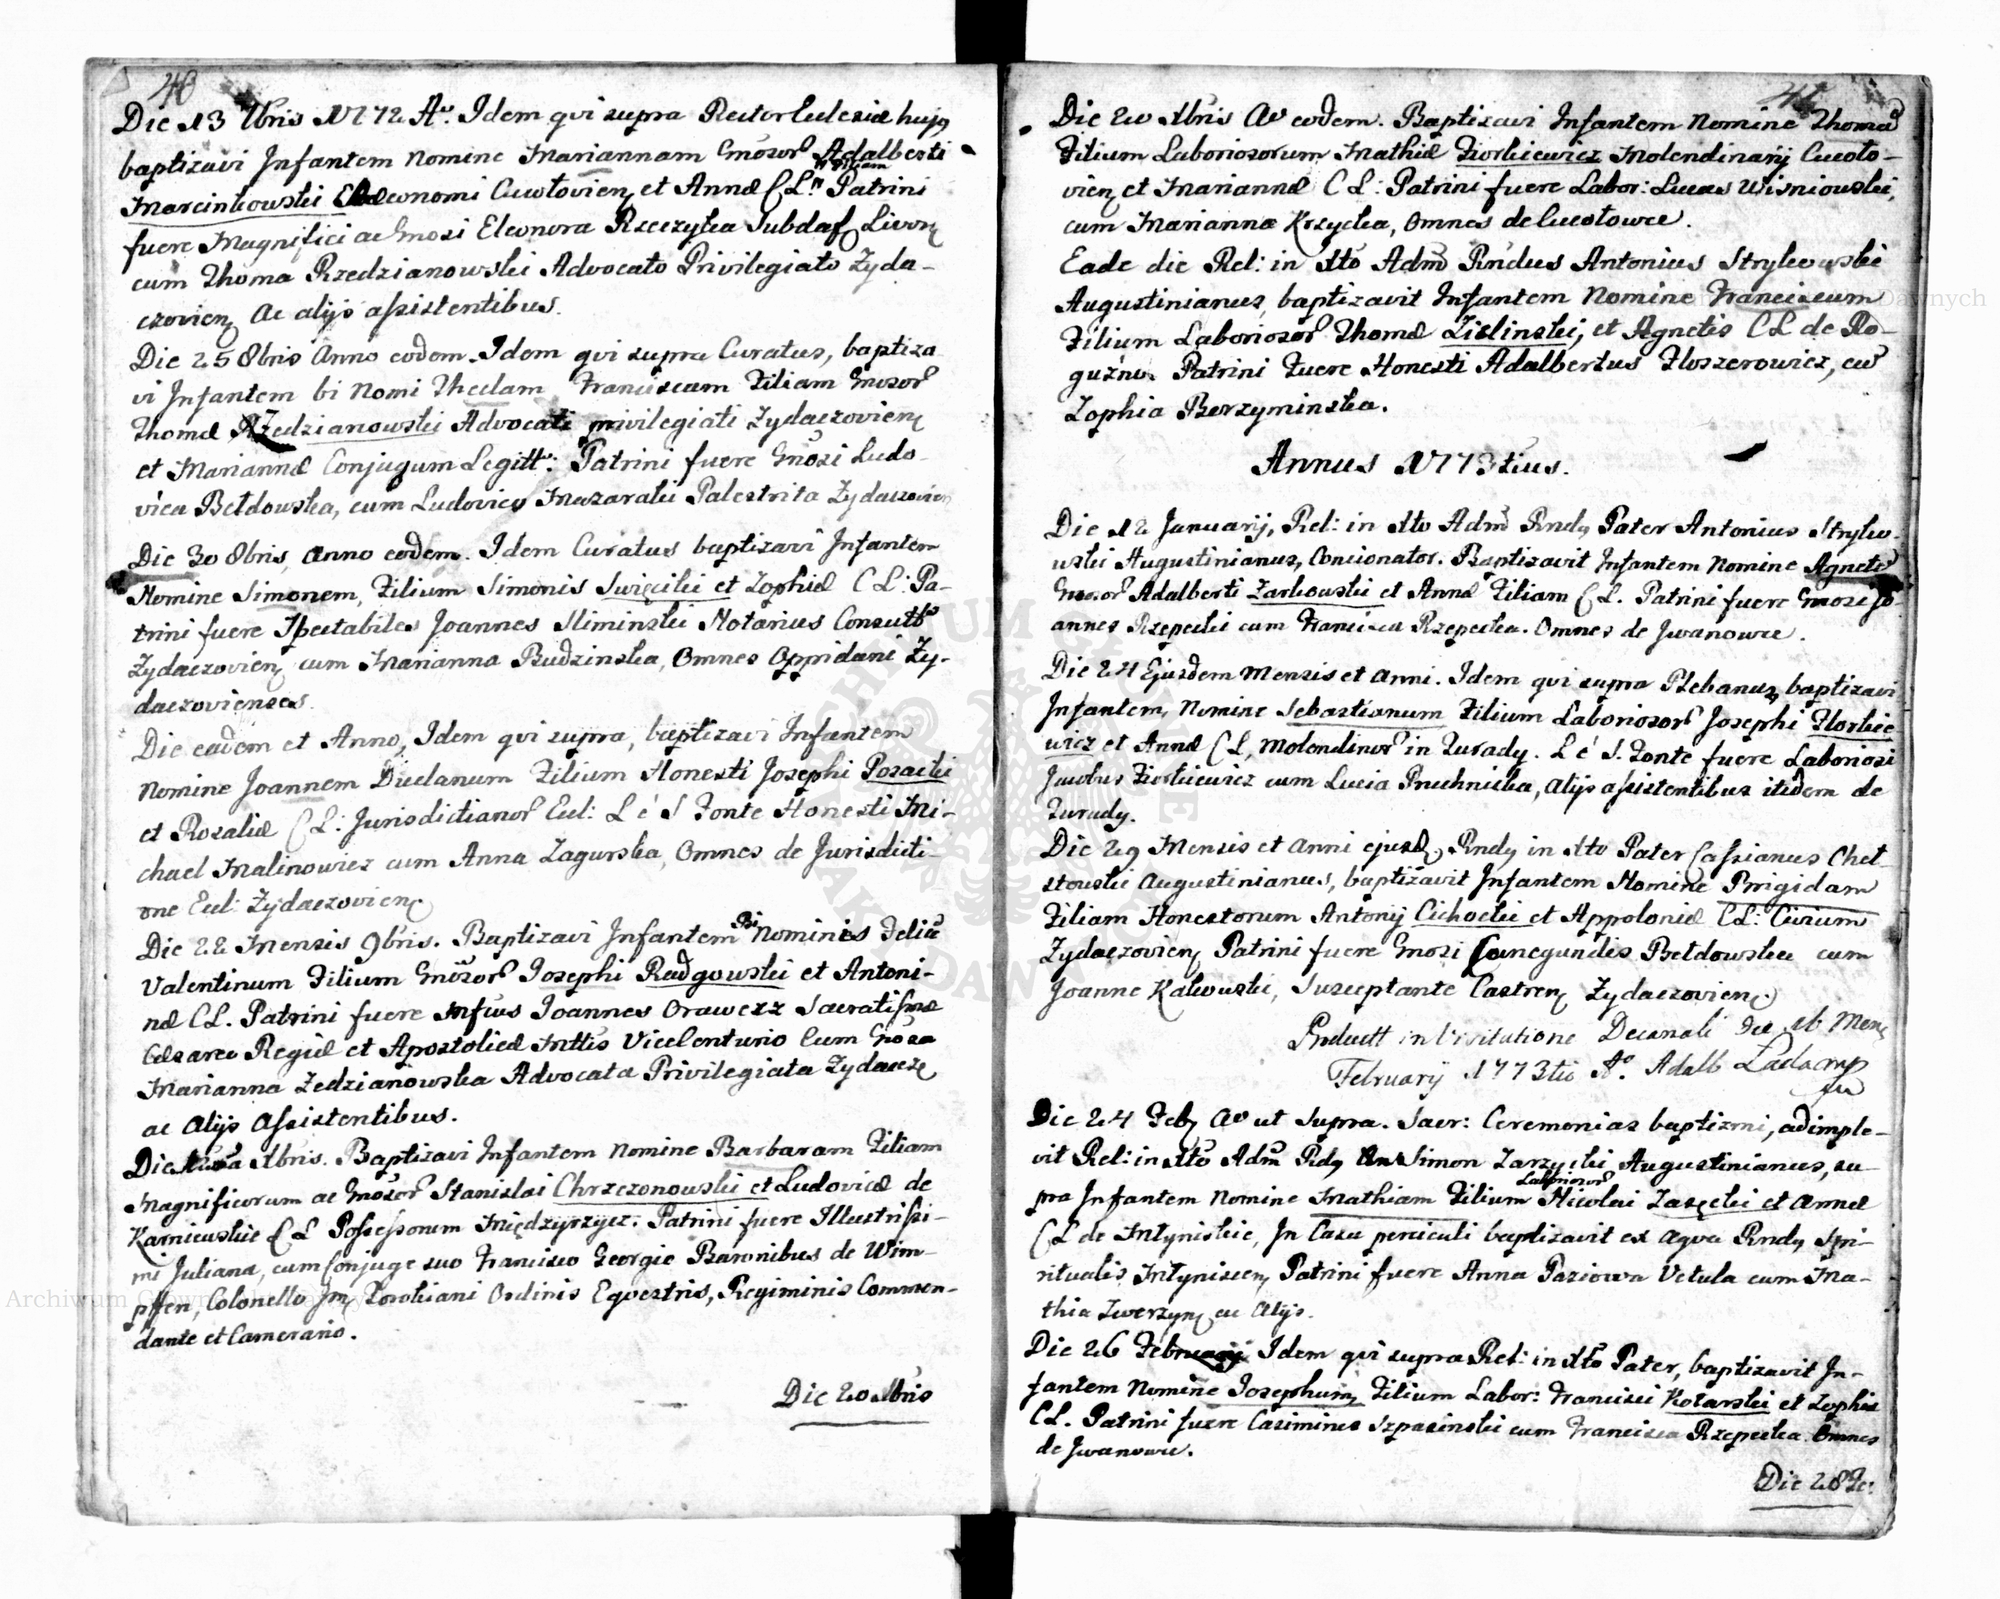 40
Die 13 7bris 1772 Ao. Idem qui supra Rector Ecclesiæ hujq
baptizavi Infantem Nomine Mariannam Gñosor Adalberti
filiam
Marcinkowski Œconomi Cucułovien et Annæ CL Patrini
fuere Magnifici ac Gnosi Eleonora Rzeczycka Subdaf Livon
cum Thoma Rzedzianowski Advocato Privilegiato Zyda-
czovien Ac alijs assistentibus.
Die 25 8bris Anno eodem. Idem qvi supra Curatus, baptiza
vi Infantem bi Nomi Theclam Franciscam Filiam Gnosor
Thomæ Rzedzianowski Advocati privilegiati Zydaczovien
et Mariannæ Conjugum Legitt: Patrini fuere Gnosi Ludo
vica Bełdowska, cum Ludovico Mazaraki Palestrita Zydaczovien
Die 30 8bris, Anno eodem. Idem Curatus baptizavi Infantem
Nomine Simonem, Filium Simonis Swięcicki et Zophiæ CL: Pa-
trini fuere Spectabiles Joannes Kliminski Notarius Consult
Zydaczovien cum Marianna Budzinska, Omnes Oppidani Zy-
daczovienses.
Die eadem et Anno, Idem qvi supra, baptizavi Infantem
Nomine Joannem Ducłanum Filium Honesti Josephi Posacki
et Rosaliæ CL: Jurisdictianor Eccl: L é S Fonte Honesti Mi-
chael Malinowicz cum Anna Zagurska, Omnes de Jurisdicti-
one Eccl: Zydaczovien
Die 22 Mensis 9bris. Baptizavi Infantem Bi Nominis Felic
Valentinum Filium Gnosor Josephi Radgowski et Antoni-
næ CL. Patrini fuere Joannes Orawecz Sacratissmæ
Cæsareo Regiæ et Apostolicæ Mttis Vicecenturio Cum Gnosa
Marianna Zedzianowska Advocata Privilegiata Zydacz
ac Alijs Assistentibus.
Die Xbris. Baptizavi Infantem Nomine Barbaram Filiam
Magnificorum ac Gnosor Stanislai Chrzczonowski et Ludovicæ de
Karnicuskie CL Possessorum Międzyrzycz: Patrini fuere Illustrissi-
mi Juliana, cum Conjuge suo Francisco Georgio Baronibus de Wim-
pffen, Colonello Toskiani Ordinis Eqvestris, Regiminis Commen-
dante et Camerario.
Die 20 Xbris
41
Die 20 Xbris Ao eodem. Baptizavi Infantem Nomine Thomã
Filium Laboriosorum Mathiæ Fiorkiewicz Molendinarij Cucoło-
vien et Mariannæ CL: Patrini fuere Labor: Lucas Wisniowski,
cum Marianna Krzycka, Omnes de Cucołowce.
Eade die Rel: in Xto Adm Rndus Antonius Strylkowski
Augustinianus, baptizavit Infantem Nomine Franciscum
Filium Laboriosor Thomæ Zielinski, et Agnetis CL de Ro-
guźno. Patrini Fuere Honesti Adalbertus Floszerowicz, cũ
Zophia Berzyminska.
Annus 1773tius.
Die 12 Januarij, Rel: in Xto Adm Rndq Pater Antonius Strylko-
wski Augustinianus, Concionator. Baptizavit Infantem Nomine Agnetẽ
Gnosor Adalberti Zarkowski et Annæ Filiam CL. Patrini fuere Gnosi Jo-
annes Rzepecki cum Francisca Rzepecka. Omnes de Jwanowce.
Die 24 Ejusdem Mensis et Anni. Idem qvi supra Plebanus, baptizavi
Infantem, Nomine Sebastianum Filium Laboriosor Josephi Florkie
wicz et Annæ CL, Molendinor in Turady. L é S. Fonte fuere Laboriosi
Jacobus Fiorkiewicz cum Lucia Pruchnicka, Alijs assistentibus itidem de
Turady.
Die 29 Mensis et Anni ejusd, Rndq in Xto Pater Cassianus Cheł-
stowski Augustinianus, baptizavit Infantem Nomine Brigidam
Filiam Honestorum Antonij Cichocki et Appoloniæ CL: Civium
Zydaczovien Patrini fuere Gnosi Cunegundes Bełdowska cum
Joanne Kalewski, Susceptante Castren Zydaczovien.
Productt in Visitatione Decanali Die 16 Men
February 1773tii Ao. Adalb Ladamp
Die 24 Feb Ao ut Supra. Sacr: Ceremonias baptizmi, adimple-
vit Rel: in Xto Adm Rdq Simon Zarzycki Augustinianus, su-
Laboriosor
pra Infantem Nomine Mathiam Filium Nicolai Zasęcki et Annæ
CL de Młyniskie, In Casu periculi baptizavit ex Aqva Rndq Spi-
ritualis Młyniscen Patrini fuere Anna Paziowa Vetula cum Ma-
thia Zwerzyn cu Alijs.
Die 26 February Idem qvi supra Rel: in Xto Pater, baptizavit In-
fantem Nomine Josephum, Filium Labor: Francisci Kotarski et Zophiæ
CL. Patrini fuere Casimirus Szpasinski cum Francisca Rzepecka. Omnes
de Jwanowce.
Die 28 Fe:
Archiwum Główne Akt Dawnych